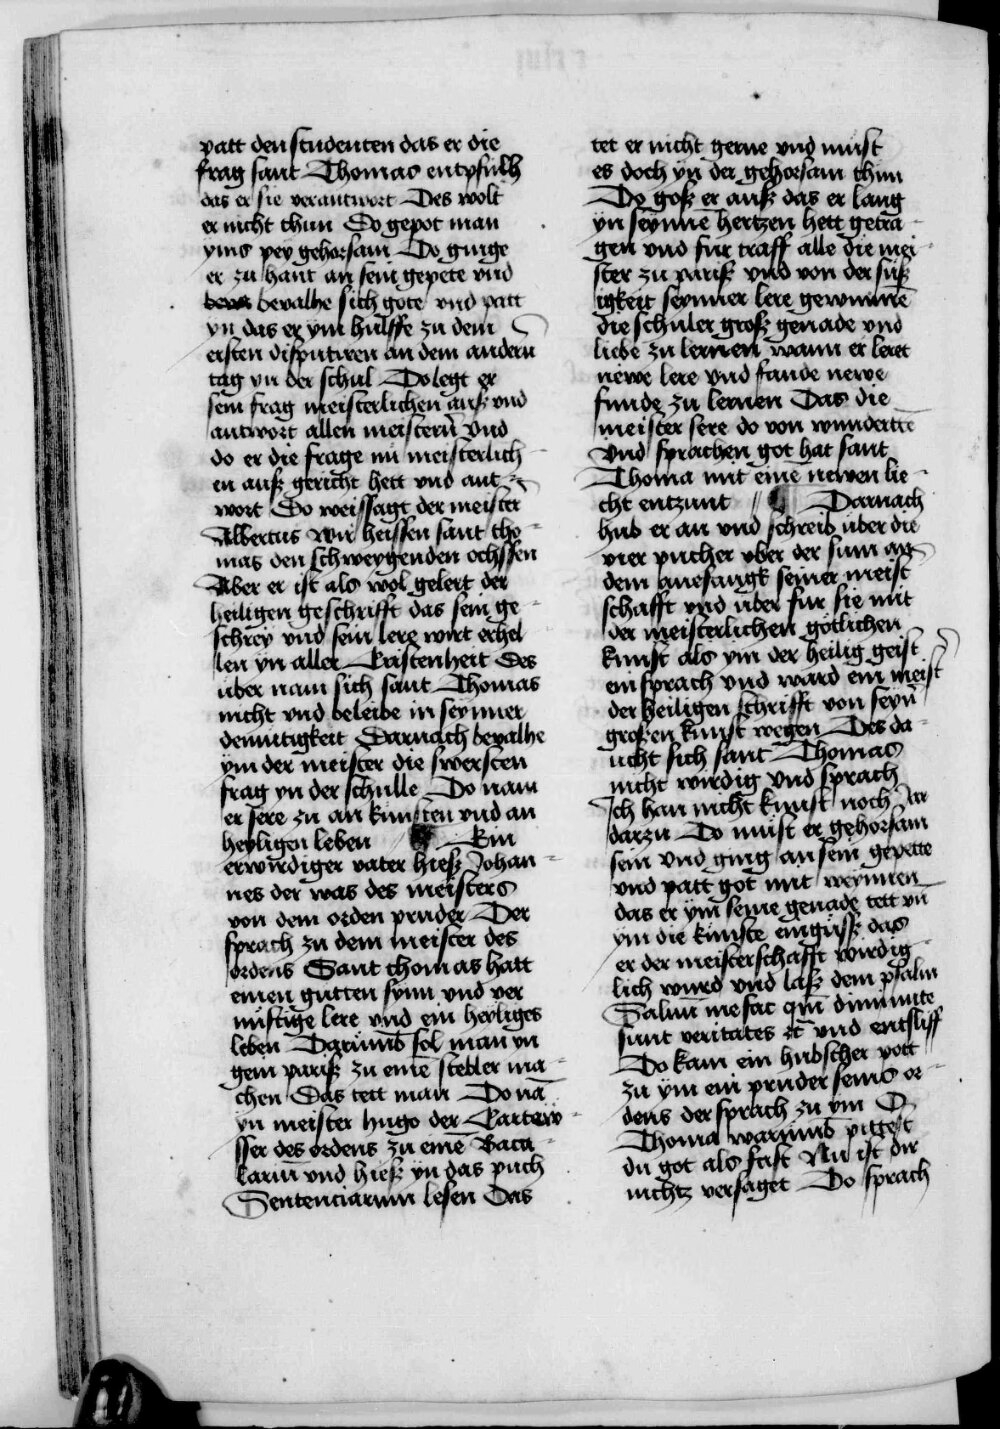 patt den studenten das er die
frag sant Thomas entpfulh
das er sie verantwort Des wolt
er nicht thun Do gepot man
yms pey gehorsam Do ginge
er zu hant an sein gepete vnd
bevalhe sich gote vnd patt
yn das er ym hulffe zu dem
ersten disputiren an dem andern
tag yn der schul Do legt er
sein frag meisterlichen auß vnd
antwort allen meistern Vnd
do er die frage nu meisterlich
en auß gericht hett vnd ant
wort Do weissagt der meister
Albertus Wir heissen sant tho-
mas den schweygenden ochssen
Aber er ist als wol gelert der
heiligen geschrifft das sein ge-
schrey vnd sein lere wirt erhel
len yn aller Cristenheit Des
uber nam sich sant Thomas
nicht vnd beleibe in seynner
demutigkeit Darnach bevalhe
ym der meister die swersten
frag yn der schulle Do nam
er sere zu an kunsten vnd an
heyligen leben Ein
erwirdiger vater hieß Johan-
nes der was des meisters
von dem orden pruder Der
sprach zu dem meister des
ordens Sant thomas hatt
einen gutten synn vnd ver
nuftige lere vnd ein heyliges
leben Darumb sol man yn
gein pariß zu eine stebler ma-
chen Das tett man Do nā
yn meister hugo der Cartew
sser des ordens zu eine Baca-
larium vnd hieß yn das puch
Sentenciarum lesen Das
tet er nicht gerne vnd must
es doch yn der gehorsam thun
Do goß er auß das er lang
yn seynne hertzen hett getra-
gen vnd fur traff alle die mei-
ster zu pariß vnd von der suß
igkeit seynner lere gewunnē
die schuler groß genade vnd
liebe zu lernen wann er leret
newe lere vnd fande newe
funde zu lernen Das die
meister sere do von wundertē
Vnd sprachen got hat sant
Thoma mit eine newen lie-
cht entzunt Darnach
hub er an vnd schreib uber die
vier pucher vber der sum an
dem anefangk seiner meist
schafft vnd uber fur sie mit
der meisterlichen gotlichen
kunst als ym der heilig geist
ein sprach vnd ward ein meist
der heiligen schrifft von seyn
großen kunst wegen Des da-
ucht sich sant Thomas
nicht wirdig vnd sprach
Ich han nicht kunst noch Jar
darzu Do must er gehorsam
sein vnd ging an sein gepette
vnd patt got mit weynnen
das er ym seine genade tett vn
ym die kunste einguß das
er der meisterschafft wirdig-
lich wurd vnd laß dem psalm
Saluum me fac qm diminute
sunt veritates ꝛc vnd entsliff
Do kam ein hubscher pott
zu ym ein pruder seins or-
dens der sprach zu ym O
Thoma warumb pittest
du got als fast Nu ist dir
nichtz versaget Do sprach